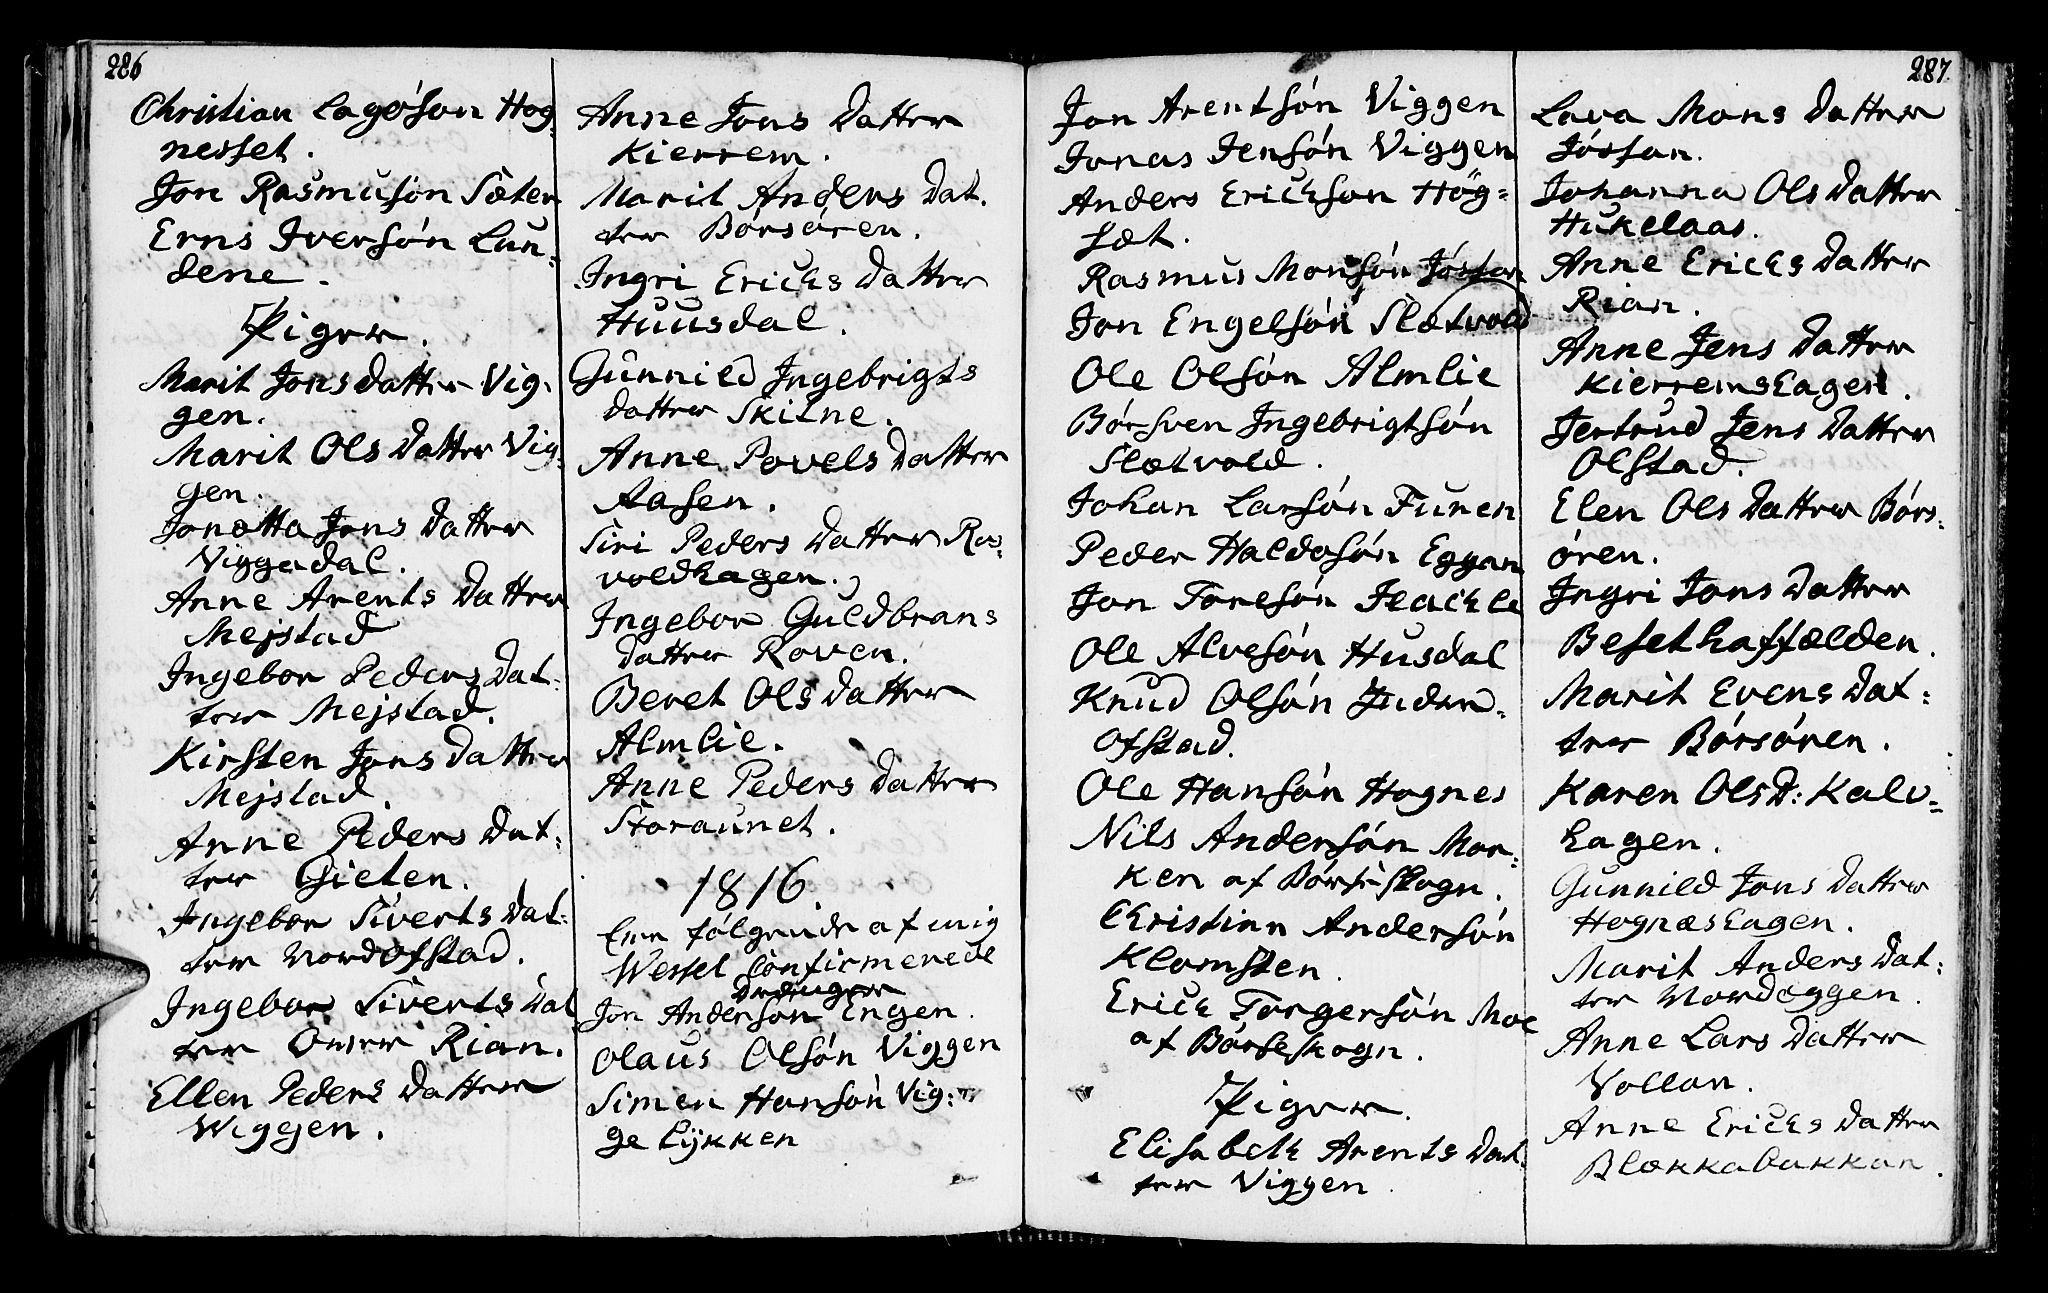 286
Christian Lagesøn Hog-
nesset.
Jon Rasmusøn Sæter
Erns Iversøn Lun-
dene.
Piger.
Marit Jons datter Vig-
gen.
Marit Ols Datter Vig-
gen.
Jonetta Jons Datter
Viggadal.
Anne Arents Datter
Mejstad
Ingebor Peders Dat-
ter Mejstad.
Kirsten Jons Datter
Mejstad.
Anne Peders Dat-
ter Gielen.
Ingebor Siverts Dat-
ter Nordofstad.
Ingebor Siverts Dat
ter Rian.
Ellen Peders Datter
Wiggen.
Anne Jons Datter
Kierrem.
Marit Anders Dat-
ter Børsøren.
Ingri Erichs Datter
Huusdal.
Gunnild Ingebrigts
datter Skilne.
Anne Povels Datter
Aasen.
Siri Peders Datter Ros-
voldhagen.
Ingebor Guldbrans
datter Roven.
Beret Ols Datter
Almlie.
Anne Peders Datter
Storaunet.
1816.
Ere følgende af mig
Wessel Confirmerede
Drenger
Jon Andersøn Engen.
Olaus Olsøn Viggen
Simen Hansøn Vig-
ge Lykken
287.
Jon Arentsøn Viggen
Jonas Jensøn Viggen
Anders Erichsøn Høg-
sæt.
Rasmus Monsøn Jøssan
Jon Engelsøn Slætvold
Ole Olsøn Almlie
Børsven Ingebrigtsøn
Slætvold.
Johan Larsøn Furen
Peder Haldosøn Eggan
Jon Toresøn
Ole Alvesøn Husdal
Knud Olsøn
Ofstad.
Ole Hansøn Hognes
Nils Andersøn Mor-
ken af Børseskogn.
Christian Andersøn
Klomsten.
Erich Torgersøn Moe
af Børseskogn.
Piger.
Elisabeth Arents Dat-
ter Viggen.
Lava Mons Datter
Jøssan.
Johanna Ols Datter
Hukelaas.
Anne Erichs Datter
Rian.
Anne Jens Datter
Kierremshagen.
Jertrud Jens Datter
Olstad.
Elen Ols Datter Børs-
øren.
Ingri Jons Datter
Besethaffælden.
Marit Evens Dat-
ter Børsøren.
Karen Ols D: Kalv-
hagen.
Gunnild Jons Datter
Hognæshagen.
Marit Anders Dat-
ter Nordeggen.
Anne Lars Datter
Vollan.
Anne Erichs Datter
Blækkabakkan.